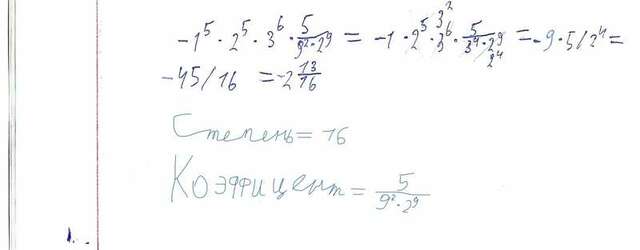 -1⁵ · 2⁵ · 3⁶ · 5/(9² · 2⁹) = -1 · 2⁵ · 3⁶ 3² · 5/(3⁴ · 2⁹ 2⁴) = -9 · 5/2⁴ =
-45/16 = -2 13/16
Степень = 16
Коэффицент = 5/(9² · 2⁹)